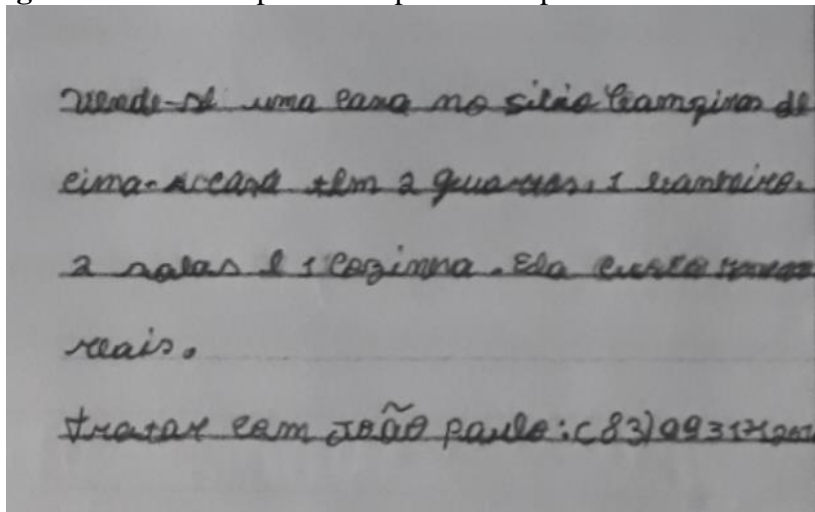 Vende-se uma casa no sítio Campinas de
cima. A casa tem 2 quartos, 1 banheiro,
2 salas e 1 cozinha. Ela custa
reais.
tratar com João Paulo: (83)